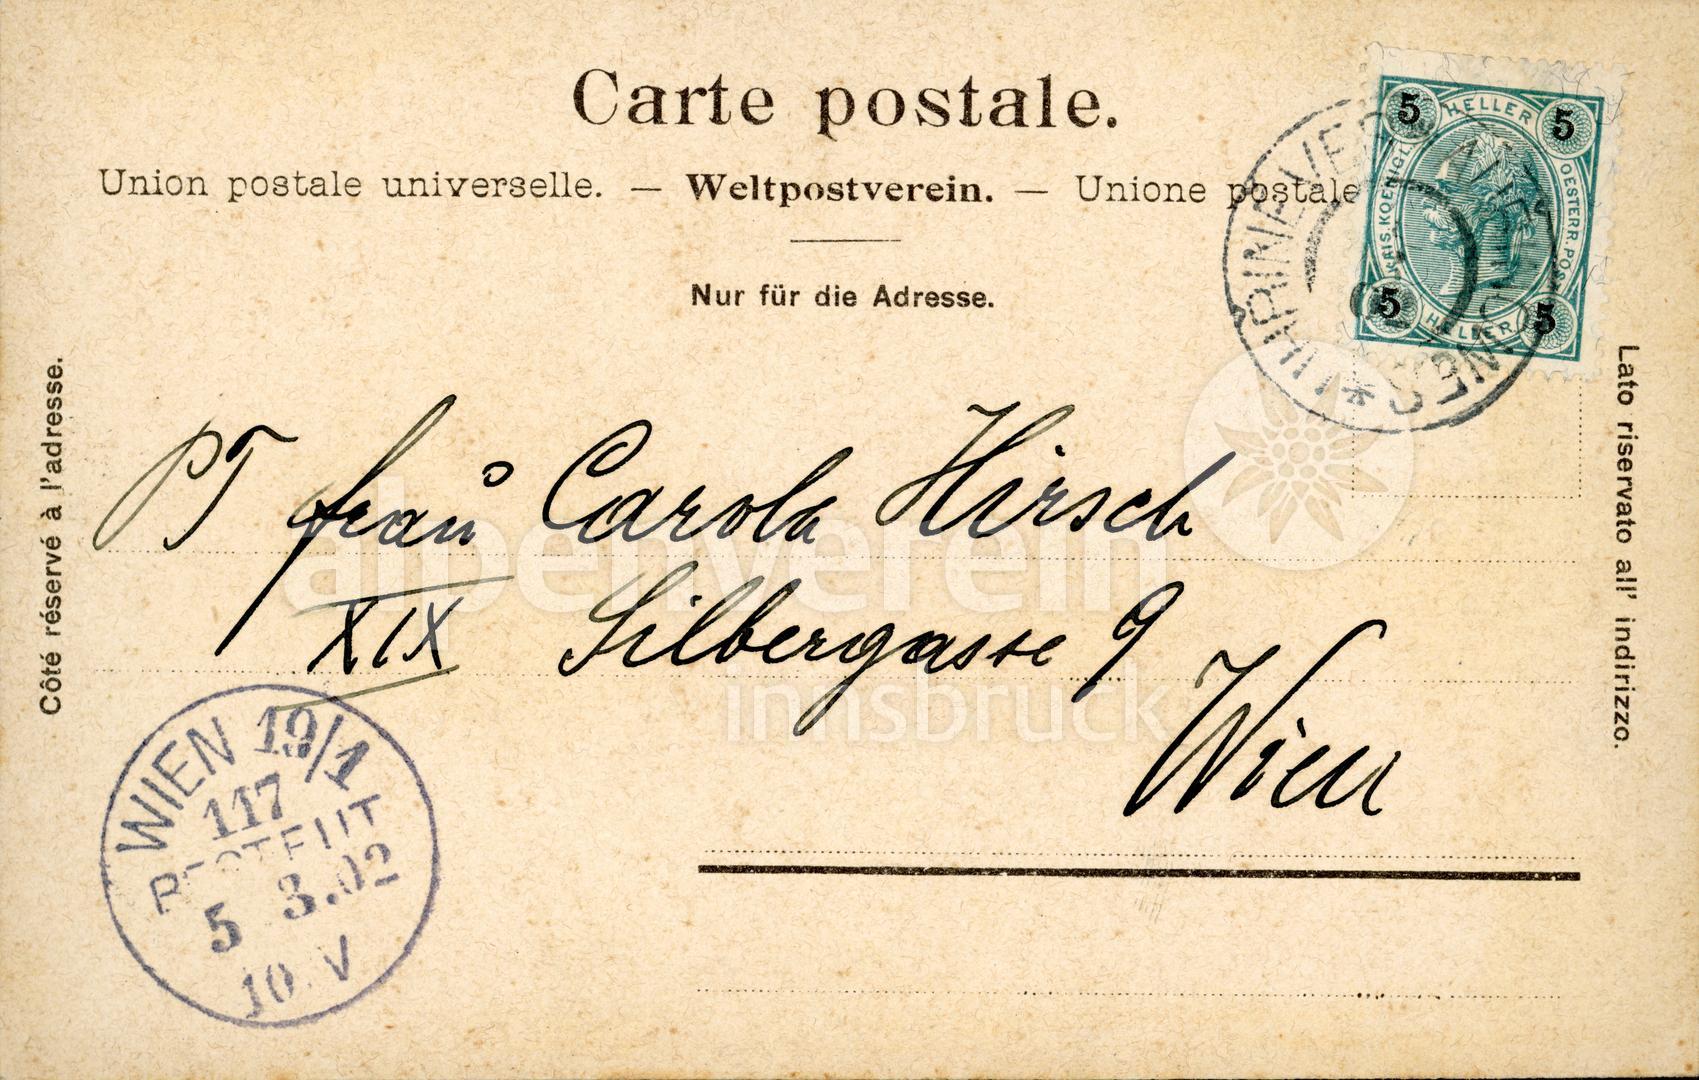 Carte postale.
Union postale universelle. — Weltpostverein. — Unione postale
Nur für die Adresse.
Côté réservé à l'adresse.
Lato riservato all' indirizzo.
5 HELLER 5
KAIS. KOENIGL.
OESTERR. POST
5 HELLER 5
PT Frau Carola Hirsch
XIX Silbergasse 9
Wien
WIEN 19/1
117
5 3.02
10.V
alpenverein
innsbruck